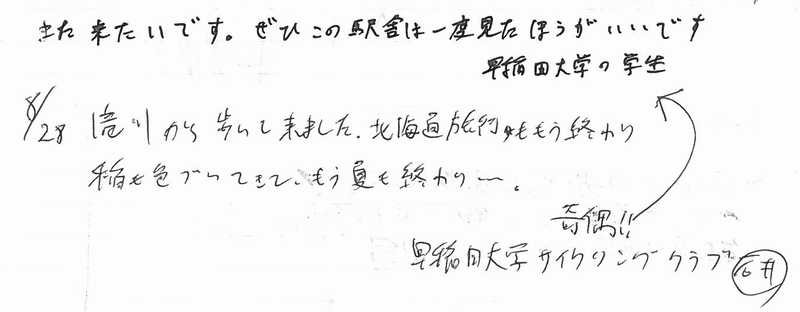 また来たいです。ぜひこの駅舎は一度見たほうがいいです
早稲田大学の学生
8/28 滝川から歩いて来ました。北海道旅行ももう終わり
稲も色づいてきて、もう夏も終わり〜。
奇偶!!
早稲田大学サイクリングクラブ 石井